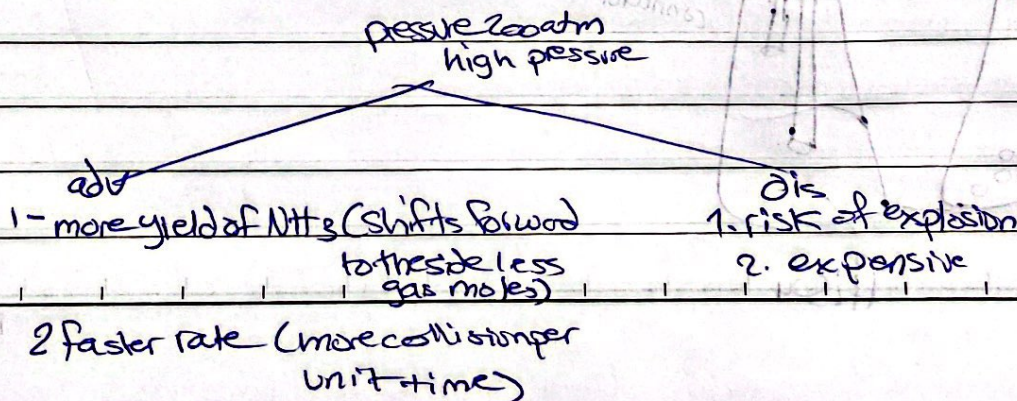 pressure 200atm
high pressure
adv
1- more yield of NH3 (shifts forword
to the side less
gas moles)
2 faster rate (more collision per
unit time)
dis
1. risk of explosion
2. expensive